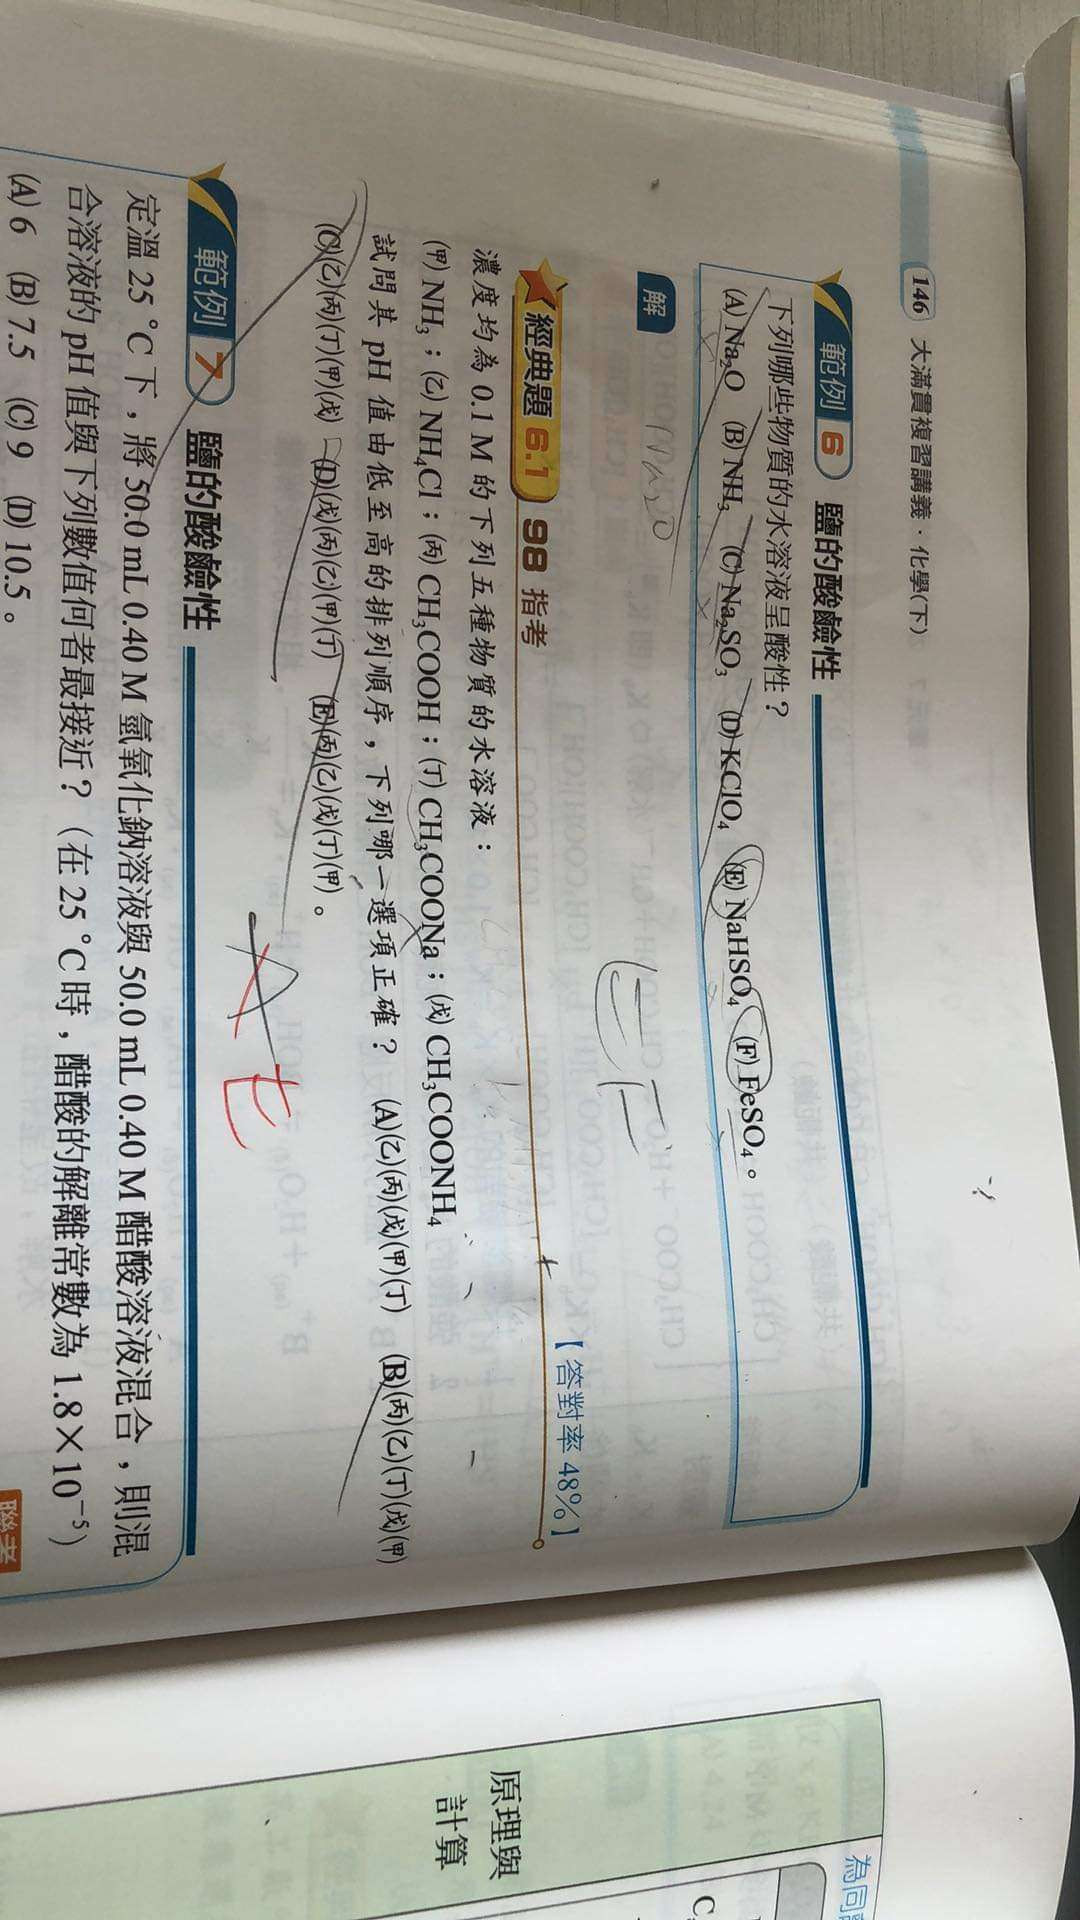 146 大滿貫複習講義・化學(下)
範例 6 鹽的酸鹼性
下列哪些物質的水溶液呈酸性？
(A) Na₂O (B) NH₃ (C) Na₂SO₃ (D) KClO₄ (E) NaHSO₄ (F) FeSO₄。
解
Na₂O
EF
經典題 6.1 98 指考 【答對率 48%】
濃度均為 0.1 M 的下列五種物質的水溶液：
(甲) NH₃；(乙) NH₄Cl；(丙) CH₃COOH；(丁) CH₃COONa；(戊) CH₃COONH₄
試問其 pH 值由低至高的排列順序，下列哪一選項正確？ (A)(乙)(丙)(戊)(甲)(丁) (B)(丙)(乙)(丁)(戊)(甲)
(C)(乙)(丙)(丁)(甲)(戊) (D)(戊)(丙)(乙)(甲)(丁) (E)(丙)(乙)(戊)(丁)(甲)。
A E
範例 7 鹽的酸鹼性
定溫 25 °C 下，將 50.0 mL 0.40 M 氫氧化鈉溶液與 50.0 mL 0.40 M 醋酸溶液混合，則混
合溶液的 pH 值與下列數值何者最接近？（在 25 °C 時，醋酸的解離常數為 1.8×10⁻⁵）
(A) 6 (B) 7.5 (C) 9 (D) 10.5。
聯考
原理與
計算
為同